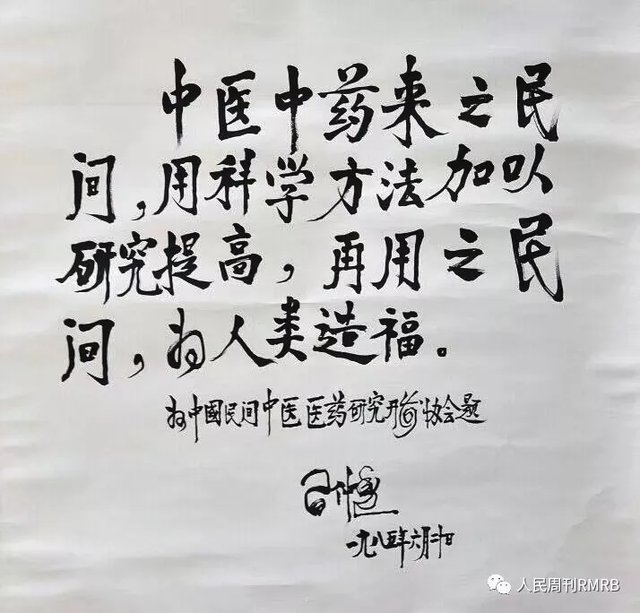 中医中药来之民
间，用科学方法加以
研究提高，再用之民
间，为人类造福。
为中國民间中医医药研究开发协会题
一九八五年六月二十日
人民周刊RMRB